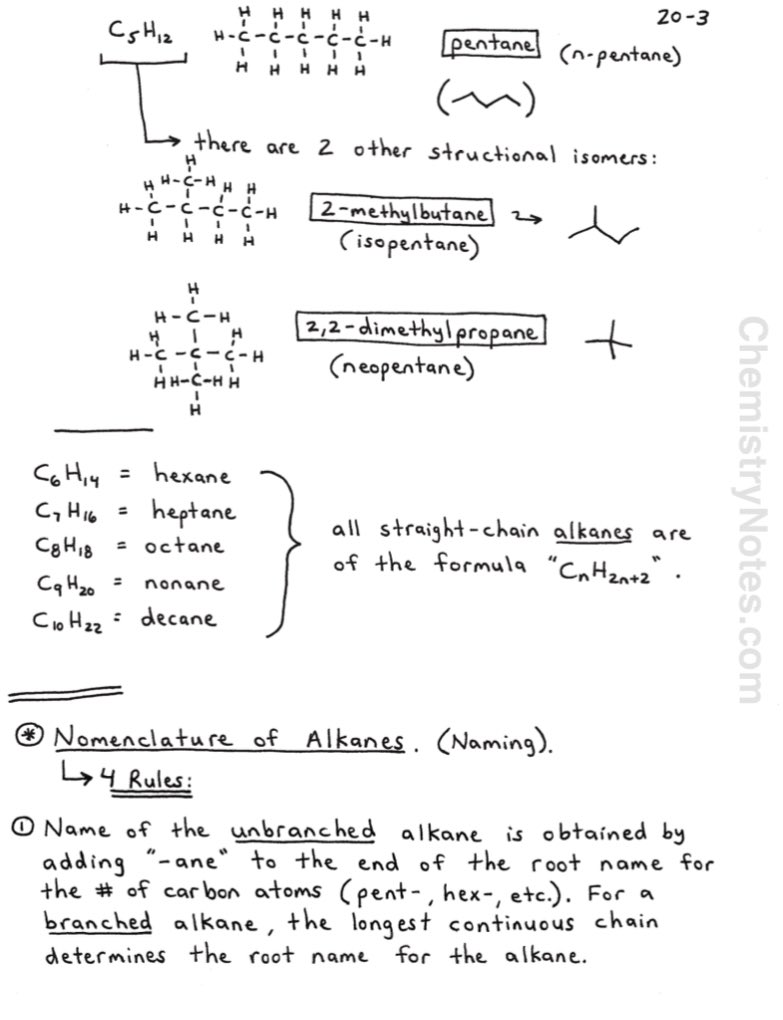 20-3
C₅H₁₂
H H H H H
H-C-C-C-C-C-H
H H H H H
pentane (n-pentane)
there are 2 other structional isomers:
H
H-C-H
H H H
H-C-C-C-C-H
H H H H
2-methylbutane
(isopentane)
H
H-C-H
H H
H-C-C-C-H
H H-C-H H
H
2,2-dimethylpropane
(neopentane)
C₆H₁₄ = hexane
C₇H₁₆ = heptane
C₈H₁₈ = octane
C₉H₂₀ = nonane
C₁₀H₂₂ = decane
all straight-chain alkanes are
of the formula "CₙH₂ₙ₊₂".
ChemistryNotes.com
* Nomenclature of Alkanes. (Naming).
4 Rules:
① Name of the unbranched alkane is obtained by
adding "-ane" to the end of the root name for
the # of carbon atoms (pent-, hex-, etc.). For a
branched alkane, the longest continuous chain
determines the root name for the alkane.